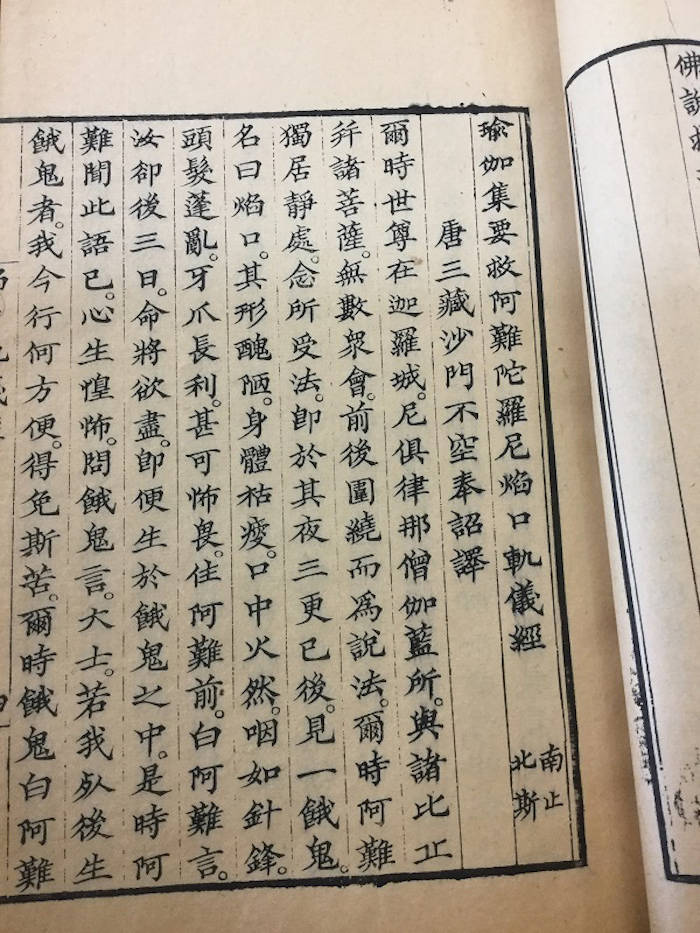 佛說
瑜伽集要救阿難陀羅尼焰口軌儀經
南止
北斯
唐三藏沙門不空奉詔譯
爾時世尊在迦羅城。尼俱律那僧伽藍所。與諸比丘
幷諸菩薩。無數衆會。前後圍繞而爲說法。爾時阿難
獨居靜處。念所受法。卽於其夜三更已後。見一餓鬼。
名曰焰口。其形醜陋。身體枯瘦。口中火然。咽如針鋒。
頭髮蓬亂。牙爪長利。甚可怖畏。住阿難前。白阿難言。
汝卻後三日。命將欲盡。卽便生於餓鬼之中。是時阿
難聞此語已。心生惶怖。問餓鬼言。大士。若我死後生
餓鬼者。我今行何方便。得免斯苦。爾時餓鬼白阿難